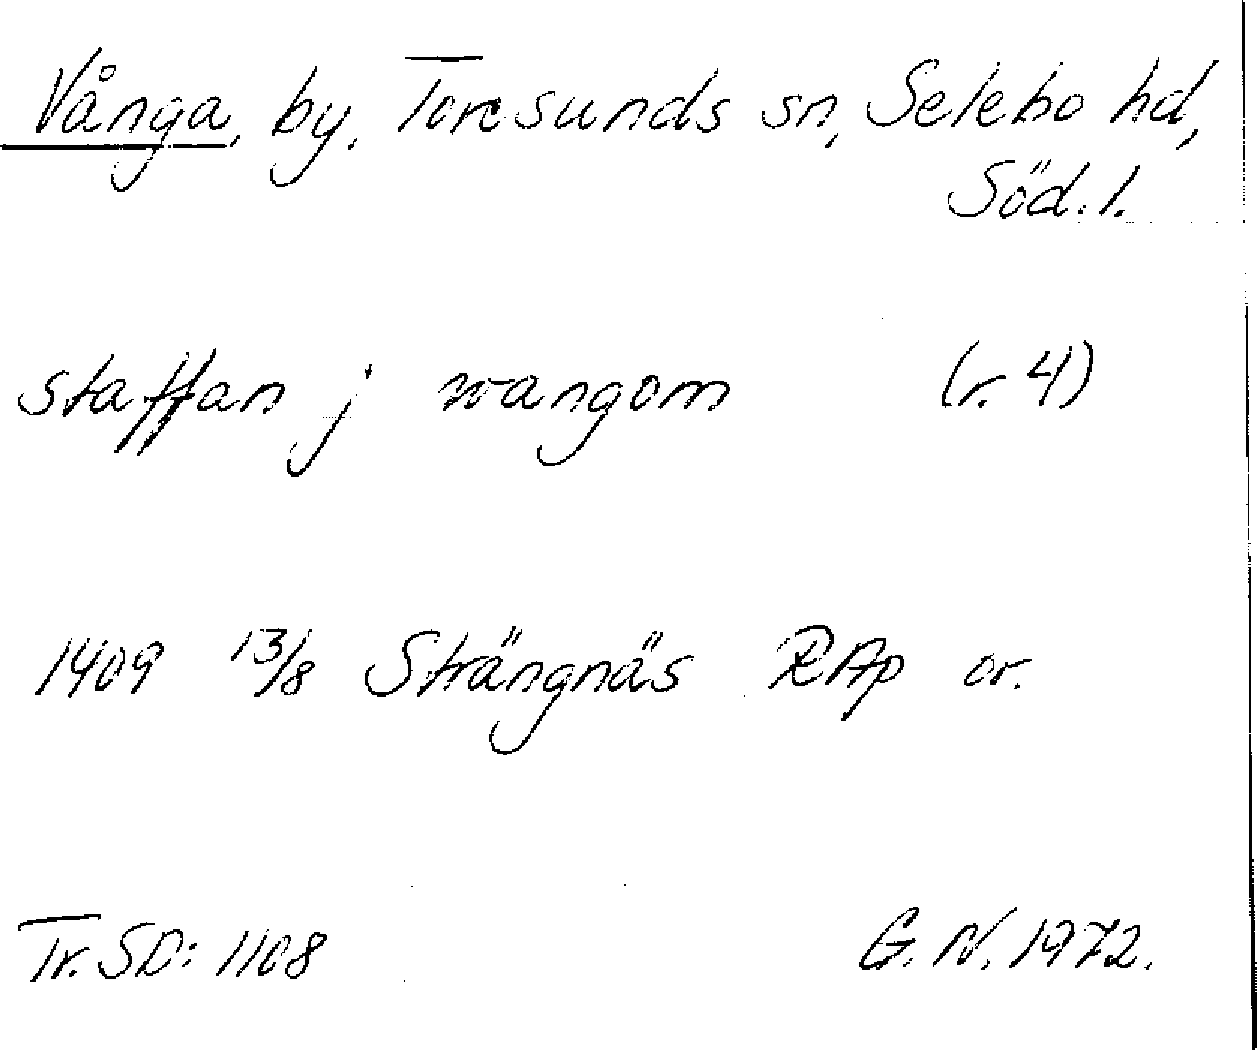 Vånga, by, Toresunds sn, Selebo hd,
Söd.l.
staffan j wangom (r. 4)
1409 13/8 Strängnäs RAp or.
Tr. SD: 1108 G. N. 1972.